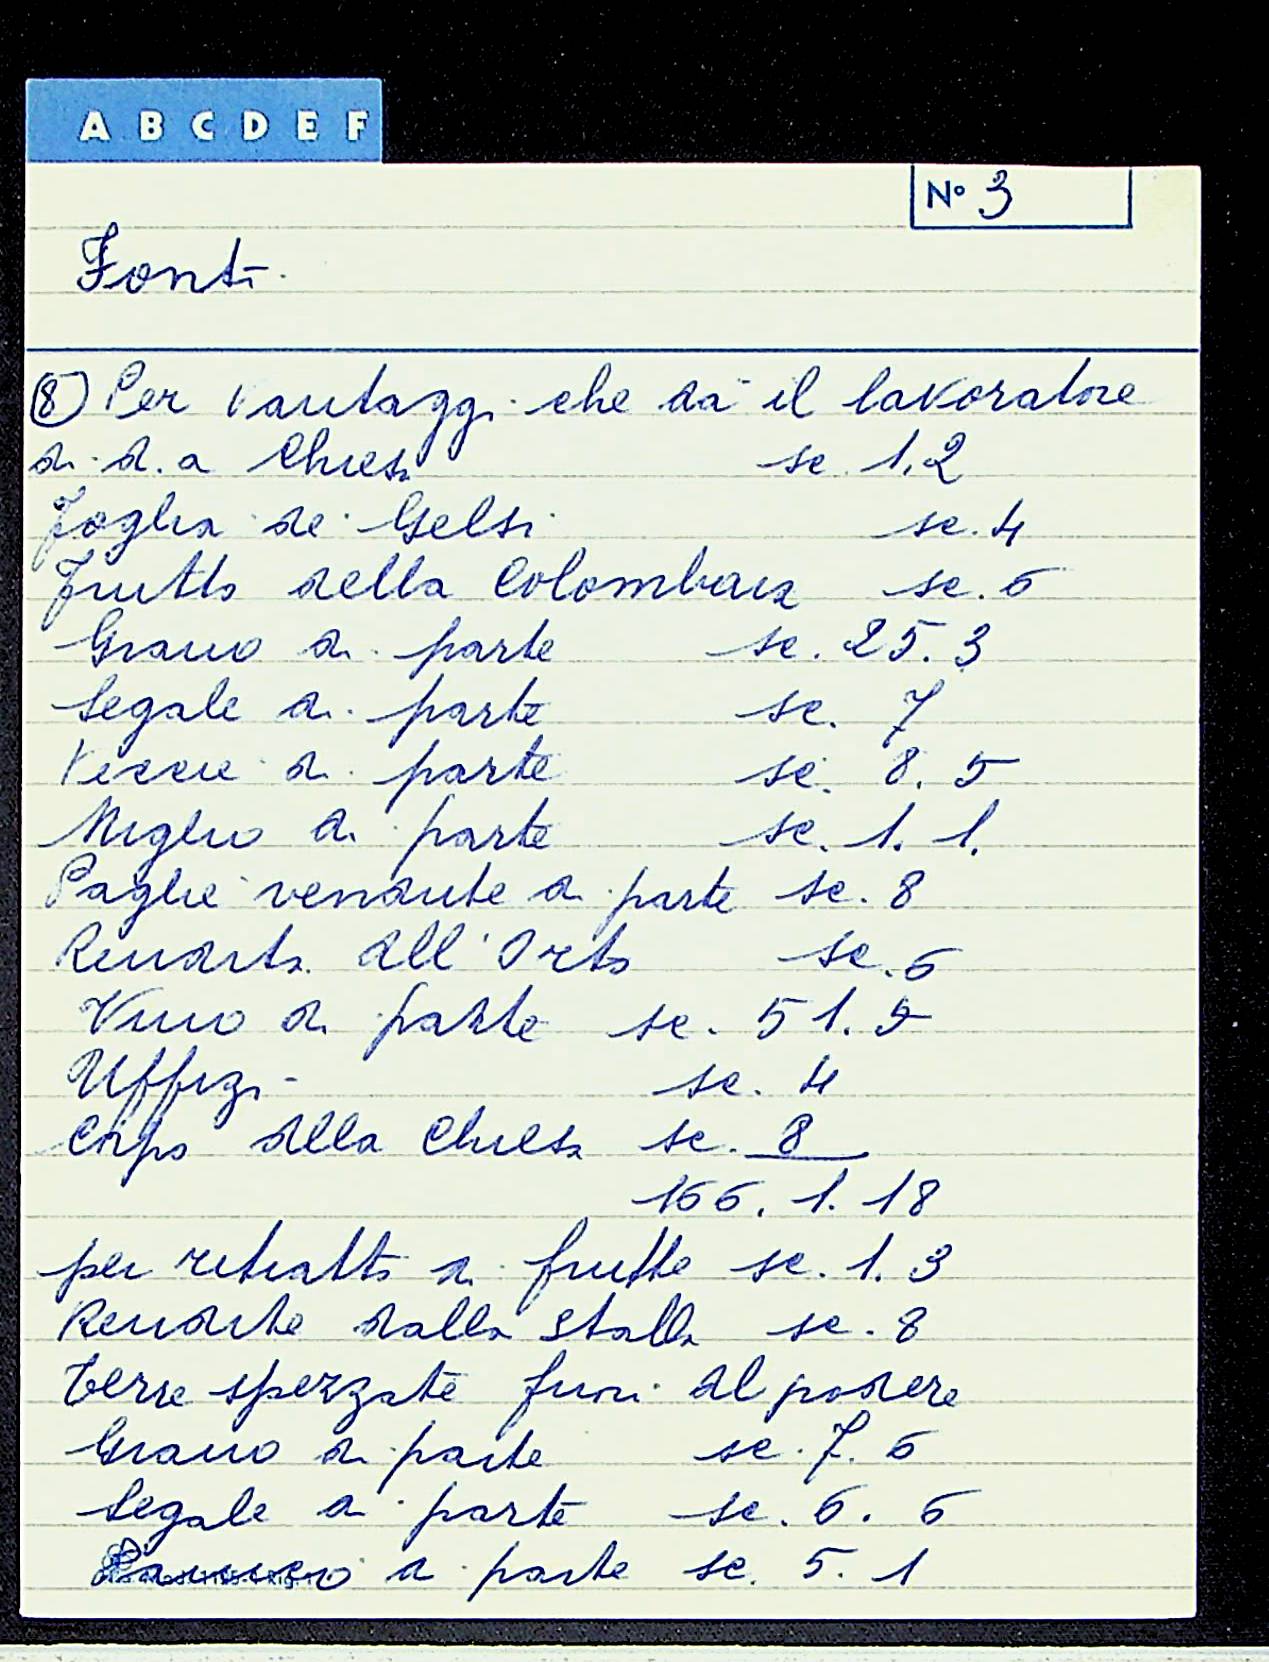 A B C D E F
Nº 3
Fonti
⑧ Per vantaggi che dà il lavoratore
di d.a Chiesa sc. 1.2
Foglia de Gelsi sc. 4
Frutto della Colombaia sc. 6
Grano di parte sc. 25. 3
Segale di parte sc. 7
Veccie di parte sc. 8. 5
Miglio di parte sc. 1. 1.
Paglie vendute di parte sc. 8
Rendita all'Orto sc. 6
Vino di parte sc. 51. 5
Uffizi sc. 4
Corpo della Chiesa sc. 8
166. 1. 18
per ritratto di frutte sc. 1. 3
Rendite dalla stalla sc. 8
Terre spezzate fuori al podere
Grano di parte sc. 7. 6
Segale di parte sc. 6. 6
di parte sc. 5. 1